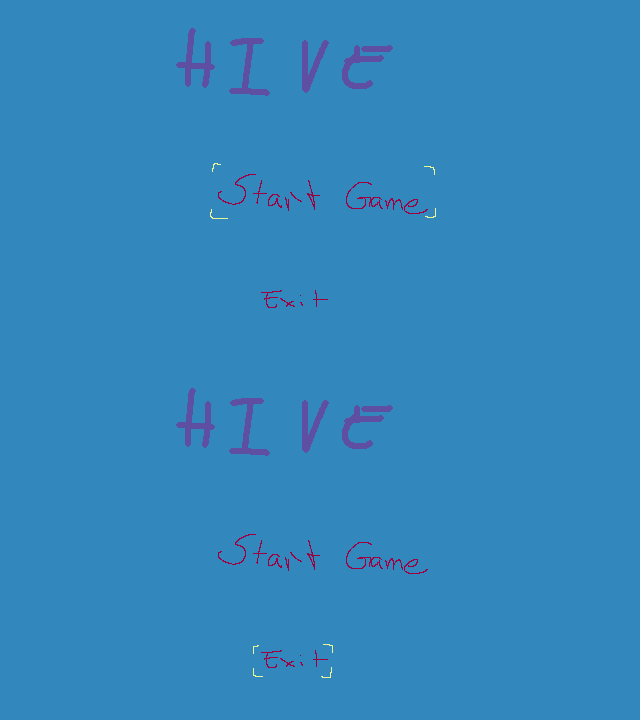 HIVE
Start Game
Exit
HIVE
Start Game
Exit